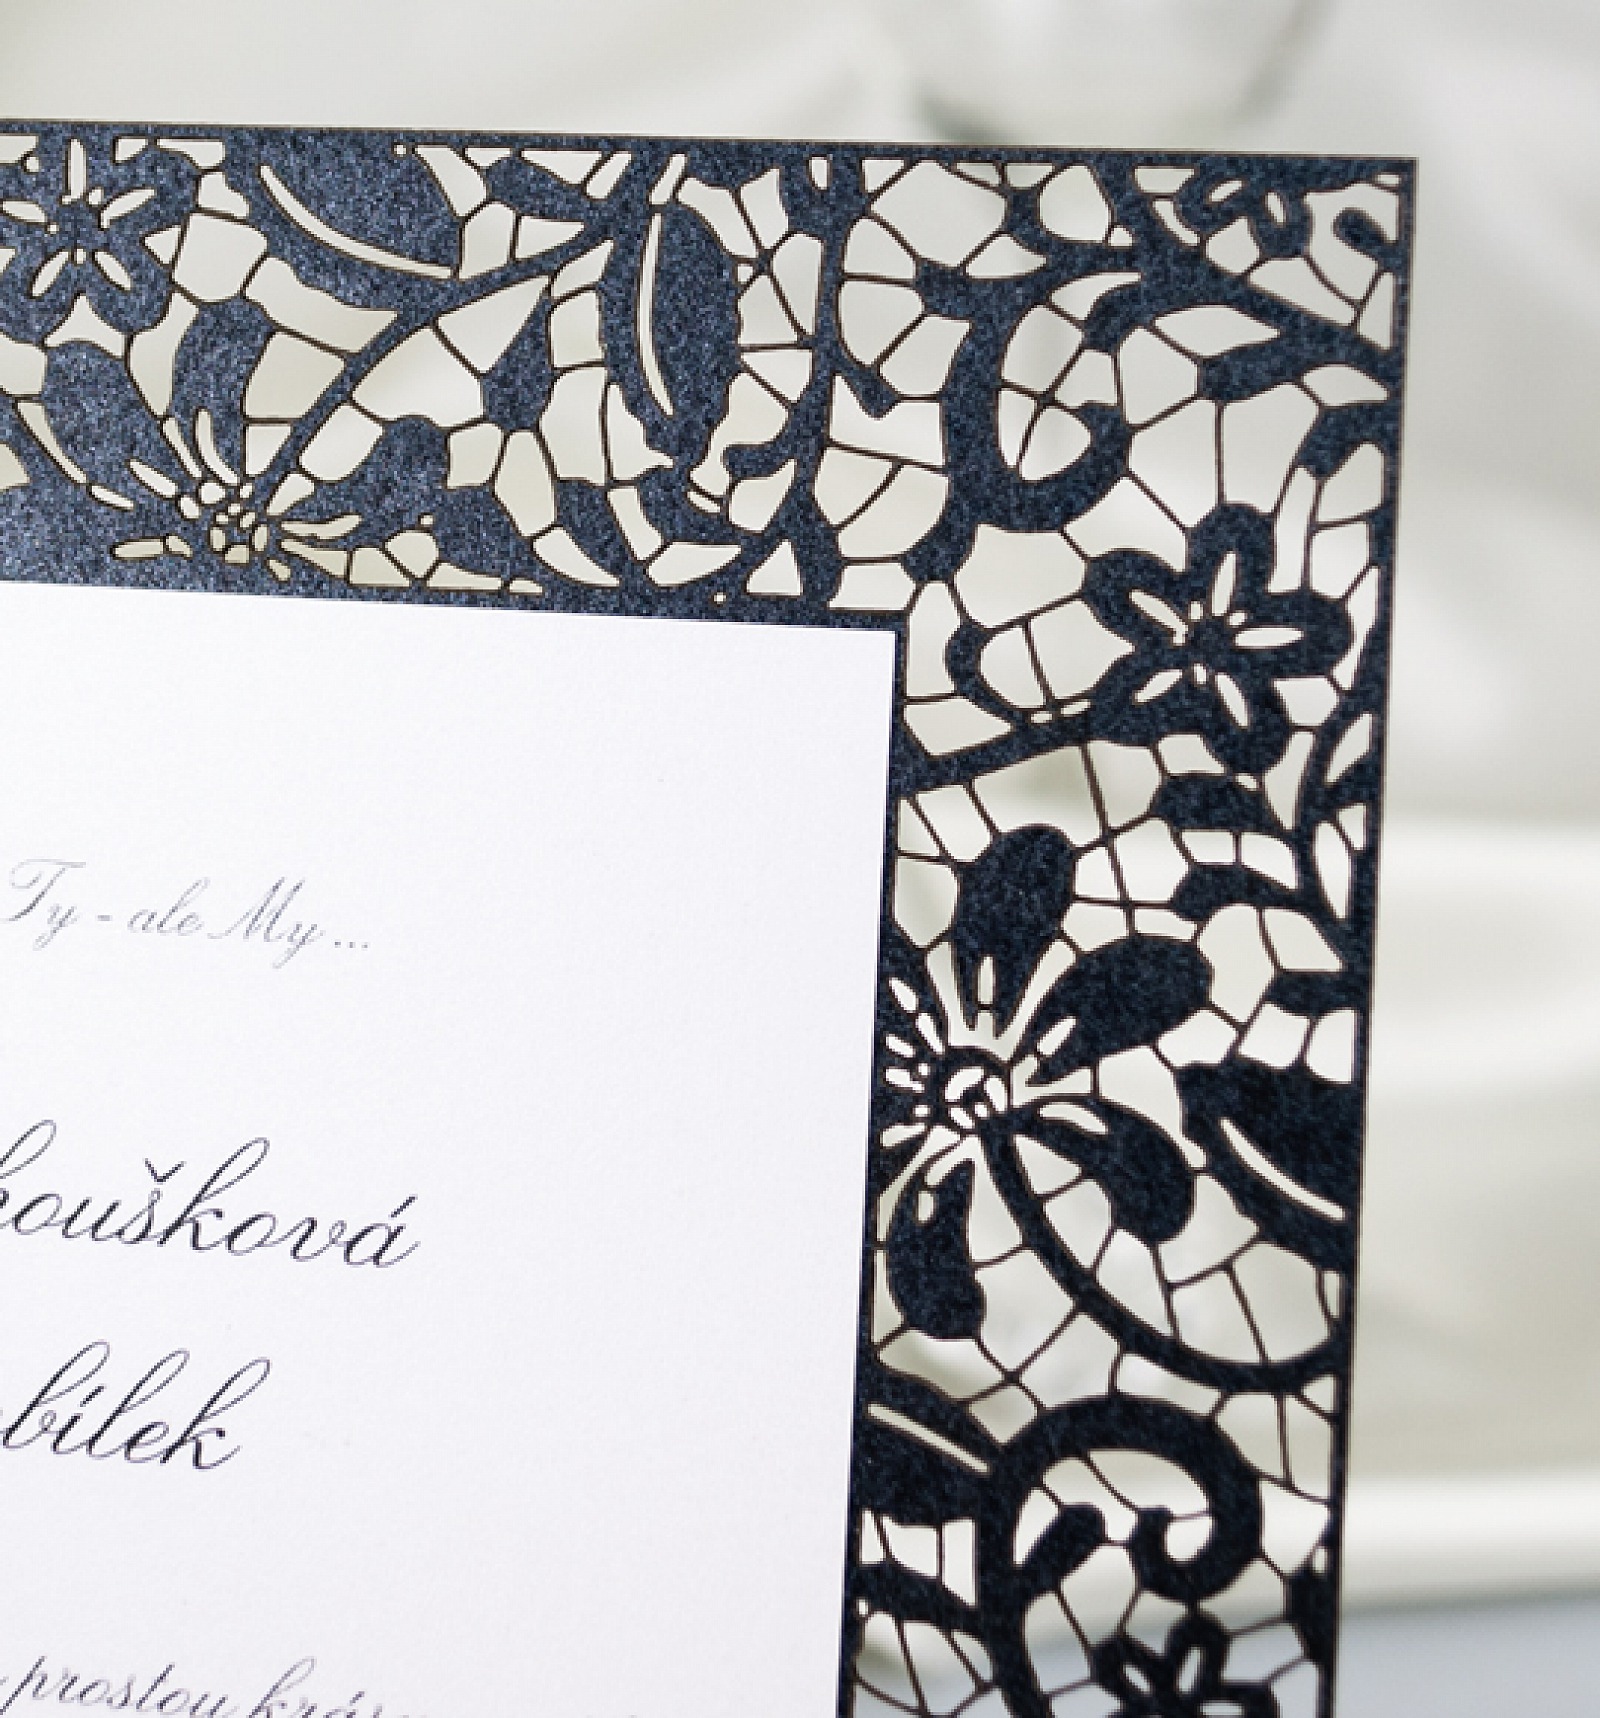 Ty - ale My ...
koušková
bílek
prostou krás